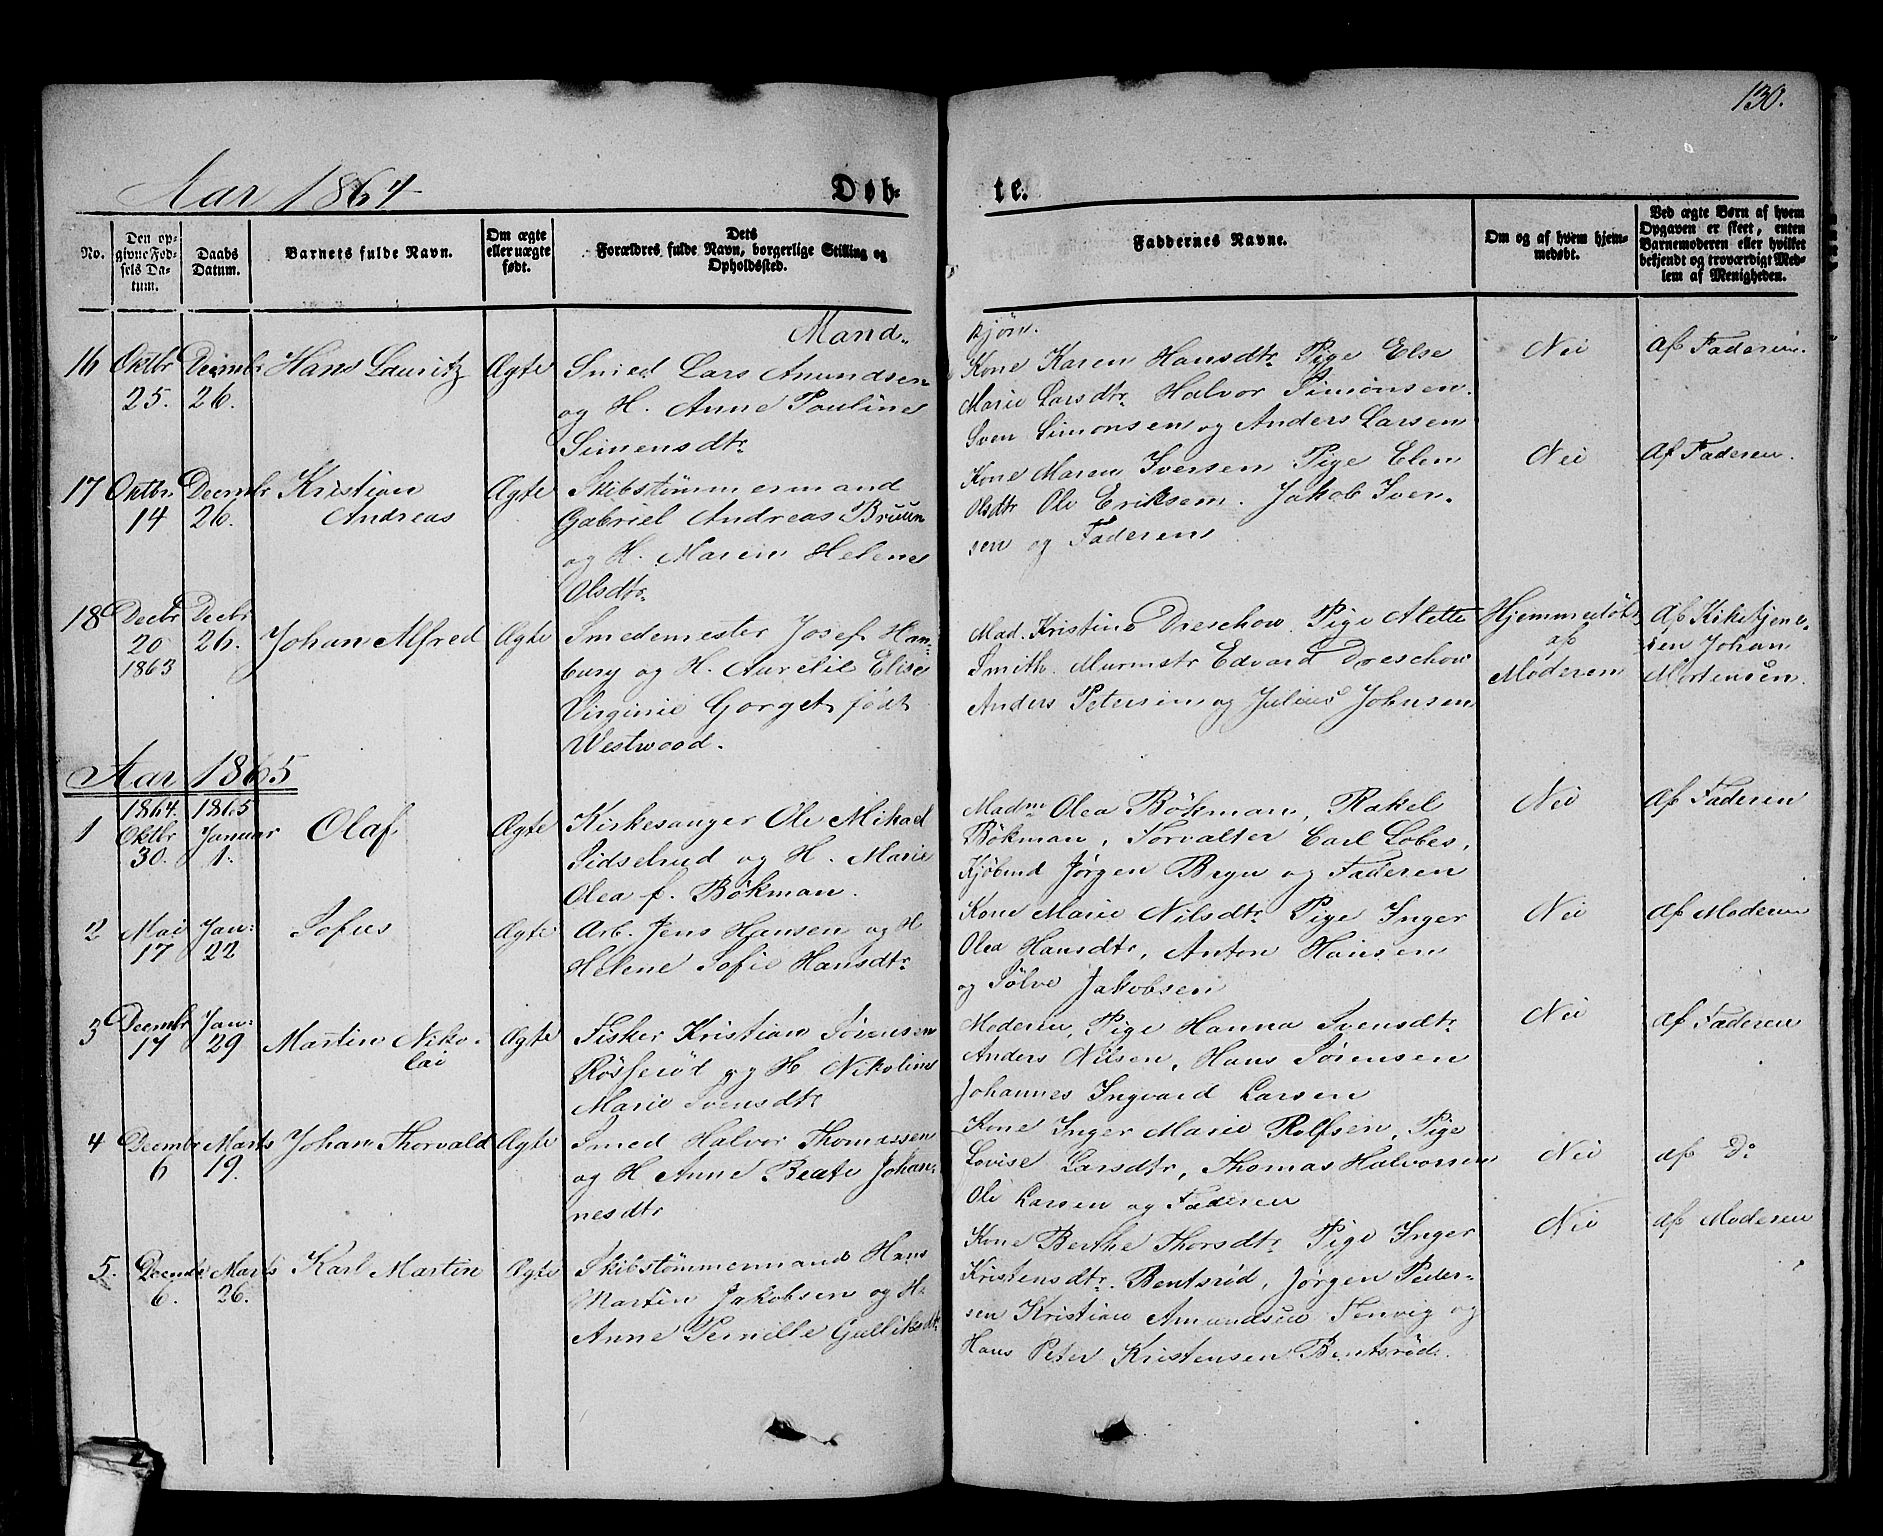 130.
Aar 1864
Døb-
te.
No.
Den op-
givne Fød-
sels Da-
tum.
Daabs
Datum.
Barnets fulde Navn.
Om ægte
eller uægte
født.
Dets
Forældres fulde Navn, borgerlige Stilling og
Opholdssted.
Faddernes Navne.
Om og af hvem hjem-
medøbt.
Ved ægte Børn af hvem
Opgaven er skeet, enten
Barnemoderen eller hvilket
bekjendt og troværdigt Med-
lem af Menigheden.
Mand-
kjøn.
16
Oktbr
25.
Decmbr
26.
Hans Lauritz
Ægte
Smed Lars Amundsen
og H. Anne Pauline
Simensdtr.
Kone Karen Hansdtr. Pige Else
Marie Larsdtr. Halvor Simonsen.
Sven Simonsen og Anders Larsen
Nei
Af Faderen.
17
Oktbr.
14
Decmbr
26.
Kristian
Andreas
Ægte
Skibstømmermand
Gabriel Andreas Bruun
og H. Maren Helene
Olsdtr.
Kone Maren Iversen Pige Elen
Olsdtr Ole Eriksen. Jakob Iver-
sen og Faderen
Nei
Af Faderen.
18
Decbr
20
1863
Decbr
26.
Johan Alfred
Ægte
Smedemester Josef Han-
bury og H. Aurelie Elise
Virginie Gorget født
Westwood.
Mad. Kristine Dreschow. Pige Alette
Smith. Murmstr Edvard Dreschow
Anders Petersen og Julius Johnsen
Hjemmedøbt
af
Moderen
Af Kirketjene-
ren Johan
Mortensen.
Aar 1865
1
1864.
Oktbr
30.
1865
Januar
1.
Olaf
Ægte
Kirkesanger Ole Mikael
Sidselrud og H. Marie
Olea f. Bökman.
Madm Olea Bökman, Rakel
Bökman, Forvalter Carl Lobes,
Kjöbmd Jørgen Bryn og Faderen
Nei
Af Faderen
2
Mai
17
Jan:
22
Sofus
Ægte
Arb. Jens Hansen og H
Helene Sofie Hansdtr.
Kone Marie Nilsdtr. Pige Inger
Olea Hansdtr, Anton Hansen
og Sölve Jakobsen
Nei
Af Moderen
3
Decmbr
17
Jan:
29
Martin Niko-
lai
Ægte
Fisker Kristian Sörensen
Rösseröd og H Nikoline
Marie Svensdtr
Moderen, Pige Hanna Svensdtr.
Anders Nilsen, Hans Sörensen
Johannes Ingvard Larsen
Nei
Af Faderen
4
Decembr
6
Marts
19.
Johan Thorvald
Ægte
Smed Halvor Thomassen
og H Anne Beate Johan-
nesdtr
Kone Inger Marie Rolfsen, Pige
Lovise Larsdtr, Thomas Halvorsen
Ole Larsen og Faderen
Nei
af Do
5.
6.
Marts
26.
Karl Martin
Ægte
Skibstømmermand Hans
Martin Jakobsen og H.
Anne Pernille Gulliksdtr
Kone Berthe Thorsdtr. Pige Inger
Kristensdtr. Bentsröd, Jørgen Peder-
sen Kristian Amundsen Tenvig og
Hans Peter Kristensen Bentsröd.
Nei
af Moderen